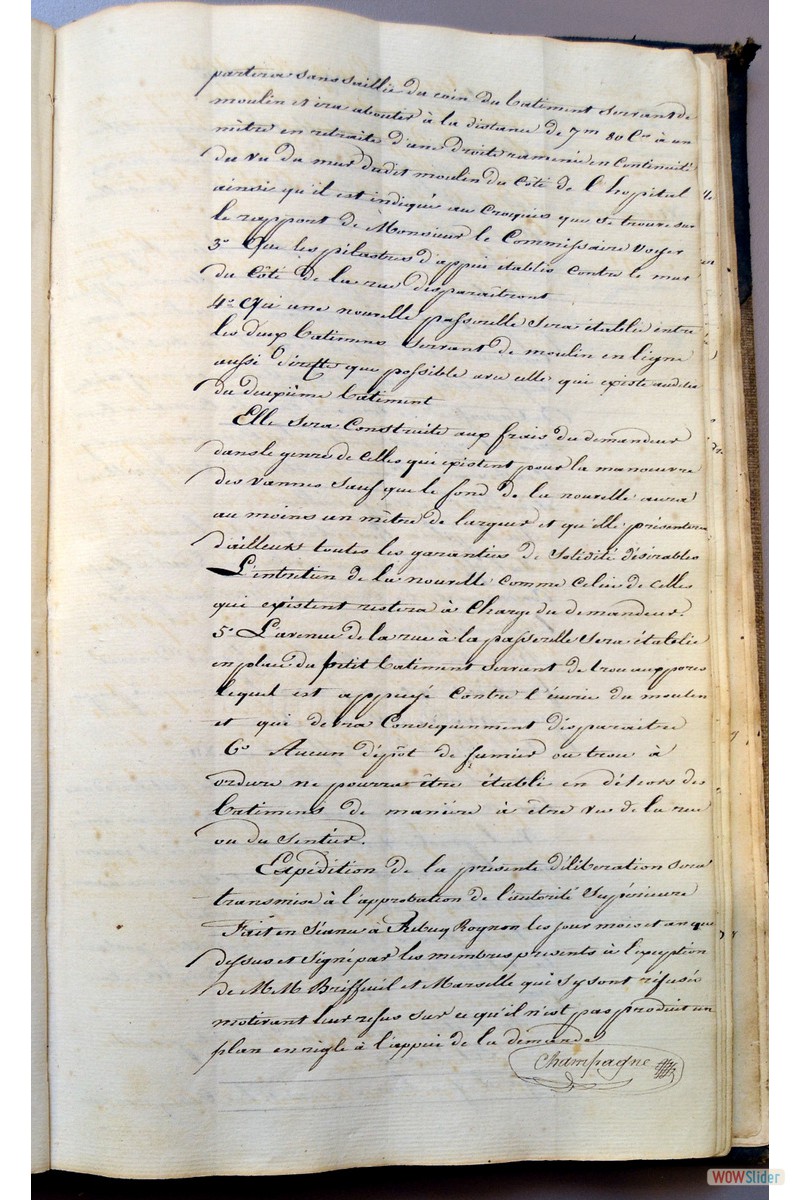 partira sans saillie du coin du batiment servant de
moulin et ira abouter à la distance de 7m 80 Cm à un
mètre en retraite d'une droite ramenée en Continuité
du nu du mur dudit moulin du Côté de l'hopital
ainsi qu'il est indiqué au Croquis que se trouve sur
le rapport de Monsieur le Commissaire Voyer
3° Que les pilastres d'appui établis contre le mur
du Côté de la rue disparaîtront
4° Qu'une nouvelle passerelle sera établie entre
les deux batimens servant de moulin en ligne
aussi directe que possible avec celle qui existe audela
du deuxième batiment
Elle sera Construite aux frais du demandeur
dans le genre de Celles qui existent pour la manœuvre
des vannes sauf que le fond de la nouvelle aura
au moins un mètre de largeur et qu'elle présentera
d'ailleurs toutes les garanties de Solidité désirables
L'entretien de la nouvelle comme Celui de Celles
qui existent restera à Charge du demandeur.
5° L'avenue de la rue à la passerelle sera établie
en place du petit batiment servant de trou aux porcs
lequel est appuyé contre l'écurie du moulin
et qui devra Conséquemment disparaitre
6° Aucun dépôt de fumier ou trou à
ordure ne pourra être établi en déhors des
batimens de manière à être vu de la rue
ou du Sentier.
Expédition de la présente délibération sera
transmise à l'approbation de l'autorité Supérieure
Fait en Séance à Rebecq Rognon les jour mois et an que
dessus et signé par les membres présents à l'exception
de M M Briffeuil et Marseille qui s'y sont réfusés
motivant leur refus sur ce qu'il n'est pas produit un
plan en règle à l'appui de la demande
Champagne
WOWSlider